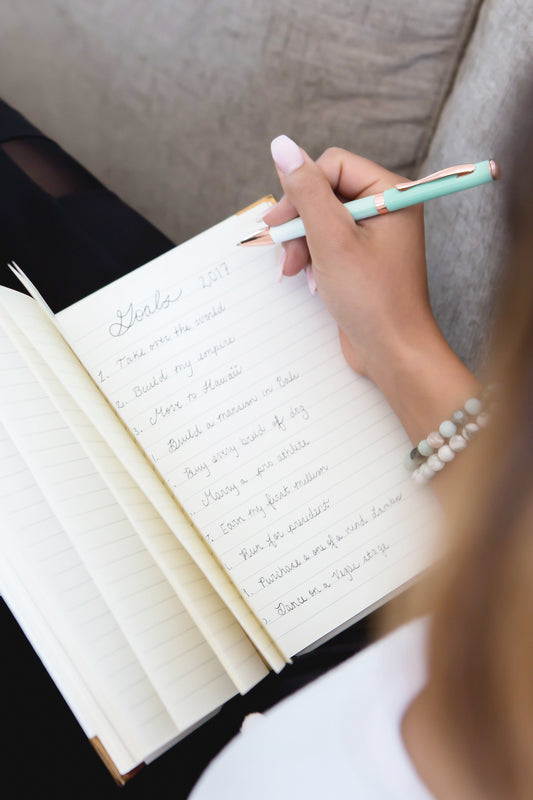 Goals 2017
1. Take over the world
2. Build my empire
3. Move to Hawaii
Build a mansion in Bali
Buy every bried of dog
Marry a pro athlete
7. Earn my first million
Run for president
Purchase a one of a kind
Dance on a Vegas stage